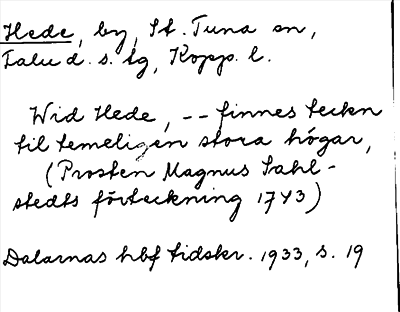 Hede, by, St. Tuna sn,
Falu d. s. tg, Kopp. l.
Wid Hede, -- finnes teckn
til temeligen stora högar,
(Prosten Magnus Sahl-
stedts förteckning 1743)
Dalarnas hbf tidskr. 1933, s. 19